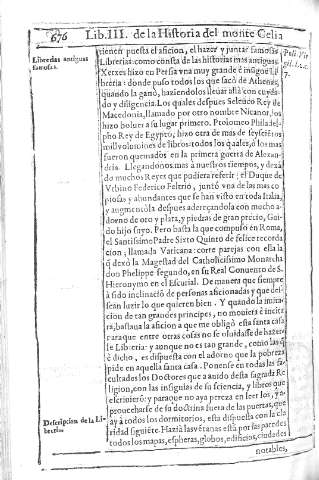 676 Lib. III. de la Historia del monte Celia
Librerias antiguas
famosas.
tienen puesta el aficion, el hazer y juntar famosas
Librerias: como consta de las historias mas antiguas.
Xerxes hizo en Persia vna muy grande è insigne Li-
breria: donde puso todos los que sacò de Athenas,
quando la ganò, haziendolos lleuar allà con cuyda-
do y diligencia. Los quales despues Seleuco Rey de
Macedonia, llamado por otro nombre Nicanor, los
hizo boluer a su lugar primero. Ptolomeo Philadel-
pho Rey de Egypto, hizo otra de mas de seyscientos
mil volumines de libros: todos los quales, ò los mas
fueron quemados en la primera guerra de Alexan-
dria. Llegandonos mas à nuestros tiempos, y dexã-
do muchos Reyes que pudiera referir: el Duque de
Vrbino Federico Feltrio, juntó vna de las mas co-
piosas y abundantes que se han visto en toda Italia,
y augmentòla despues adereçandola con mucho a-
dorno de oro y plata, y piedras de gran precio, Gui-
do hijo suyo. Pero basta la que compuso en Roma,
el Santissimo Padre Sixto Quinto de felice recorda
cion, llamada Vaticana: corte parejas con ella la
q̃ dexò la Magestad del Catholicissimo Monarcha
don Phelippe segundo, en su Real Conuento de S.
Hieronymo en el Escurial. De manera que siempre
à sido inclinaciõ de personas aficionadas y que des-
sean luzir lo que quieren bien. Y quando la imita-
cion de tan grandes principes, no mouiera è incita
ra, bastaua la aficion a que me obligó esta santa casa
paraque entre otras cosas no se oluidasse de hazer-
le Libreria: y aunque no es tan grande, como las q̃
è dicho, es dispuesta con el adorno que la pobreza
pide en aquella santa casa. Ponense en todas las fa-
cultades los Doctores que a auido desta sagrada Re
ligion, con las insignias de su sciencia, y libros que
escriuierõ: y paraque no aya pereza en leer los, y a-
prouecharse de su doctrina fuera de las puertas, que
ay à todos los dormitorios, esta dispuesta con la cla
ridad siguiẽte. Hazia las vẽtanas està por las paredes
todos los mapas, espheras, globos, edificios, ciudades
notables,
7.
Descripcion de la Li
breria.